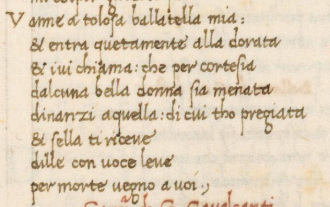 Vanne a tolosa ballatella mia:
& entra quetamente alla dorata
& ivi chiama: che per cortesia
dalcuna bella donna sia menata
dinanzi aquella: di cui tho pregiata
& sella ti riceve
dille con voce leve
per morte vegno a voi,